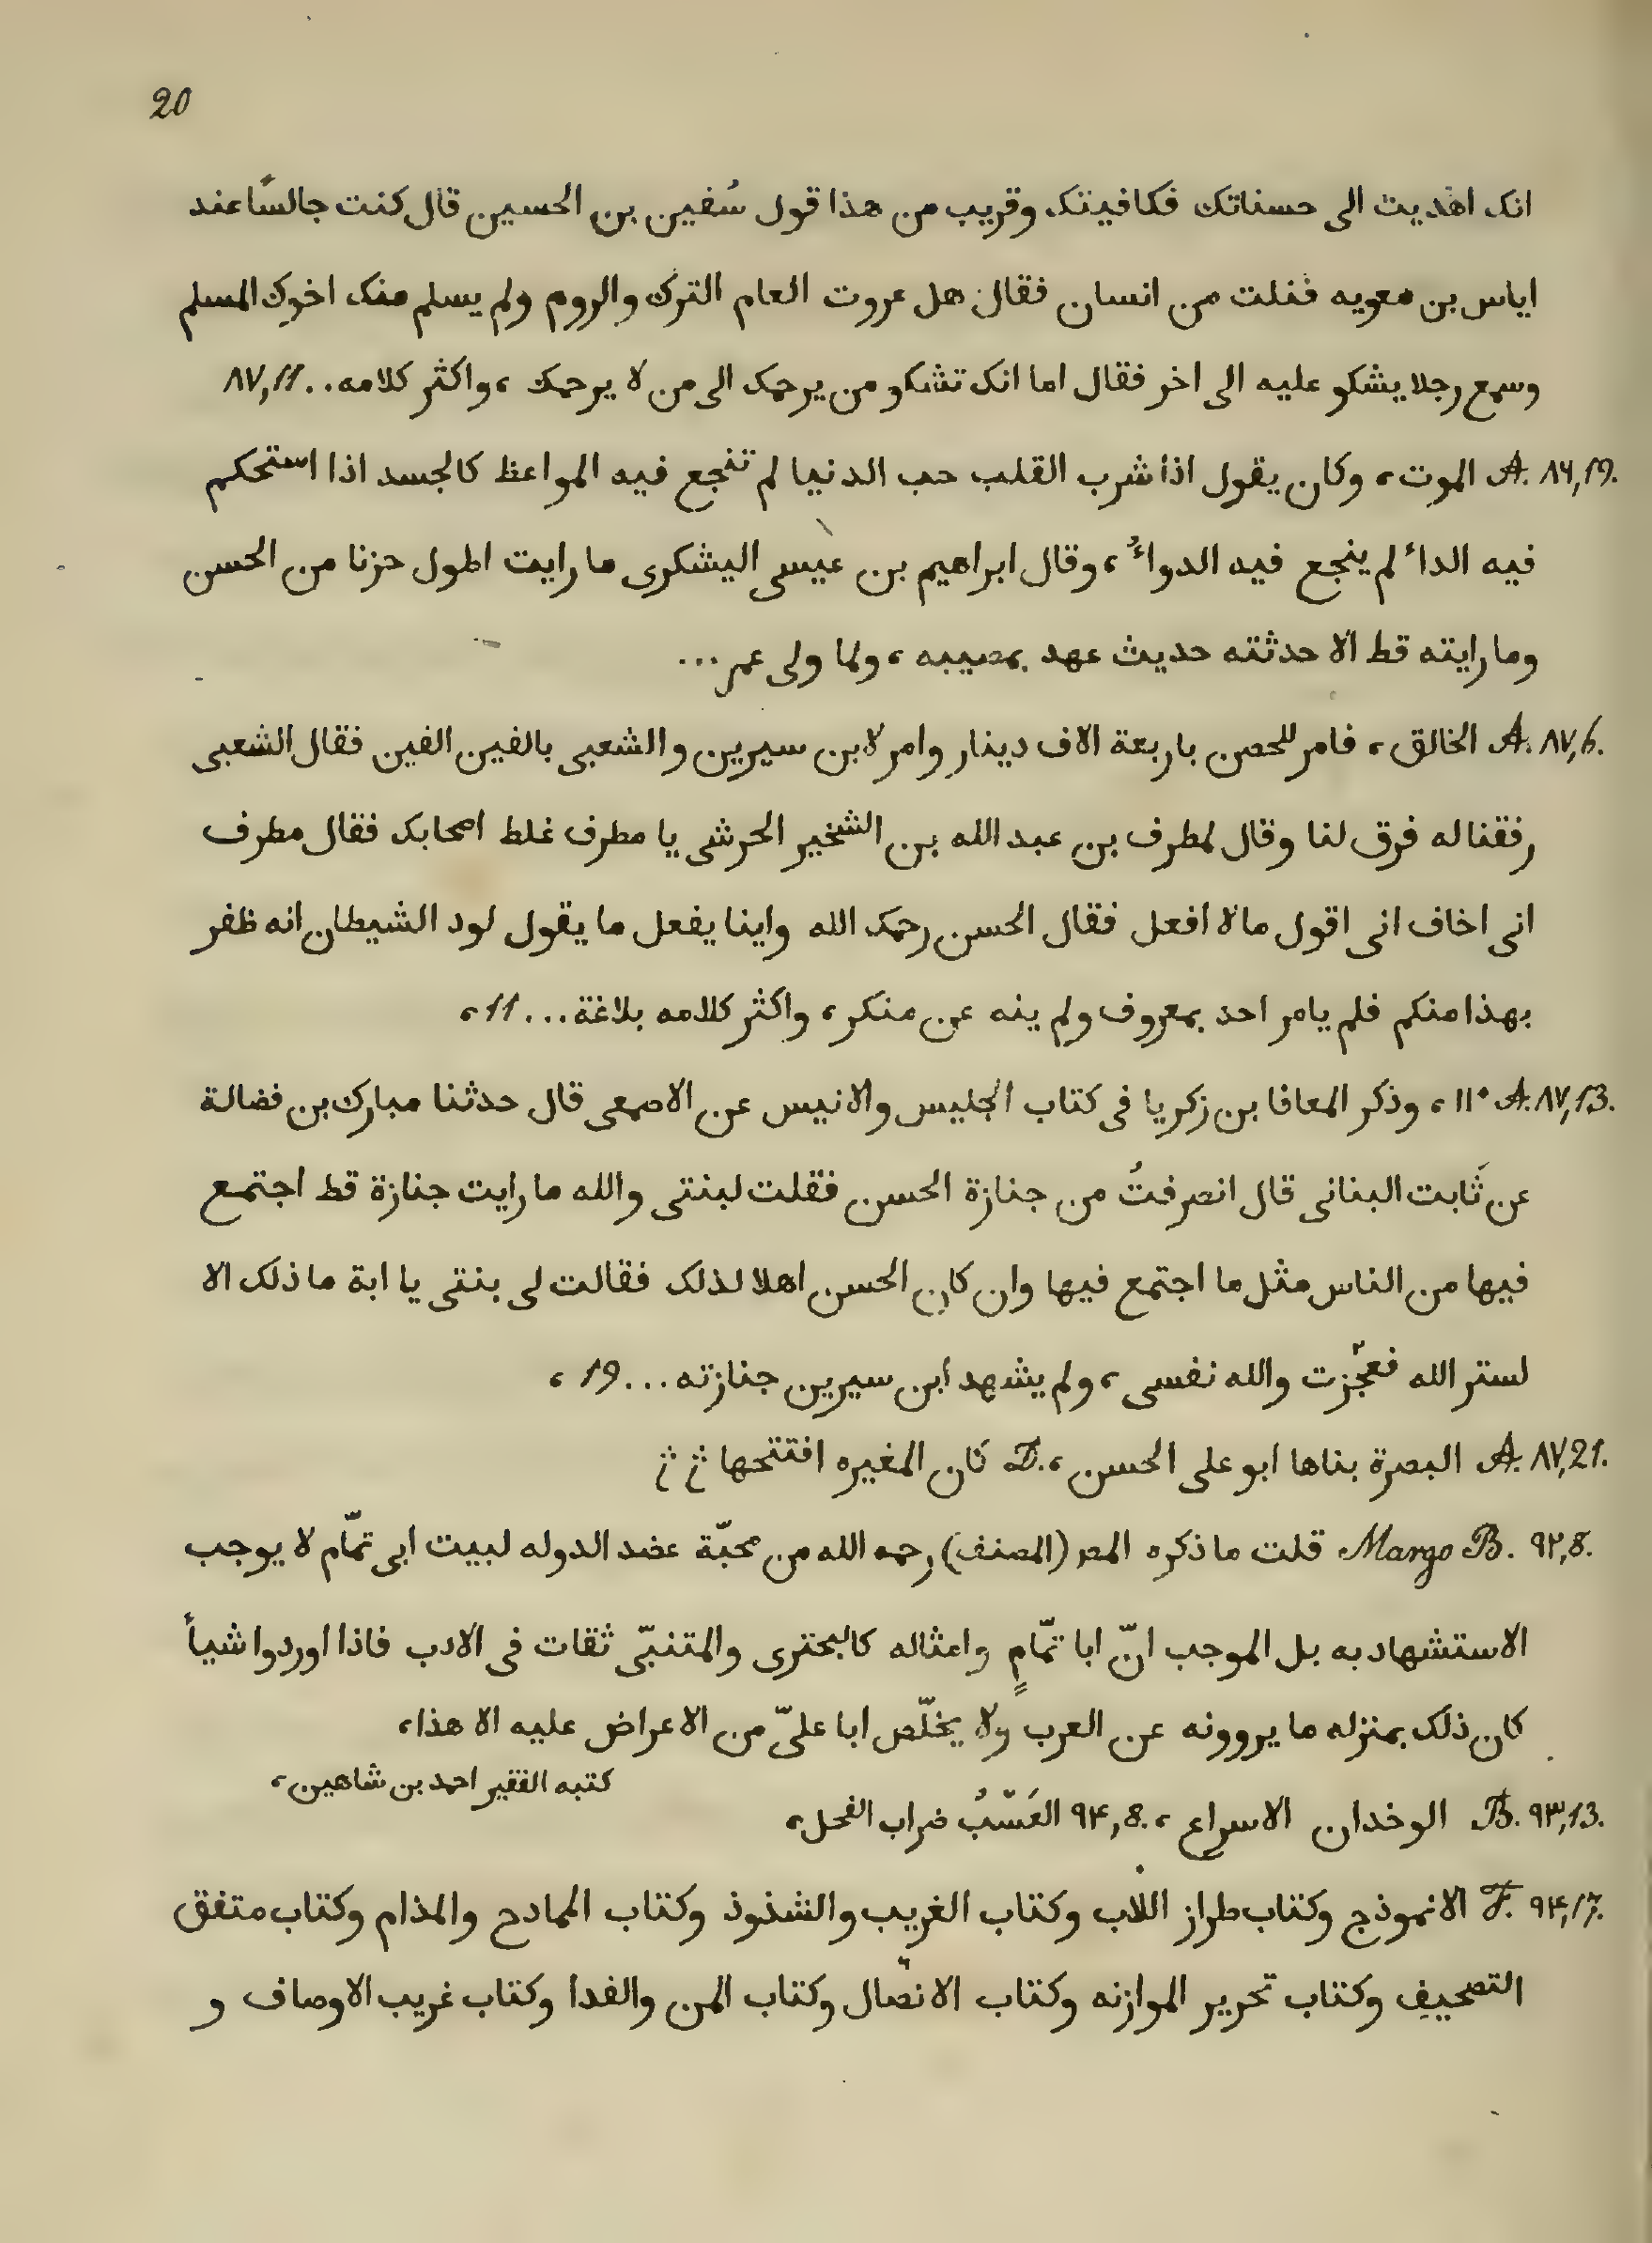 20
انك اهديت الى حسناتك فكافيتك وقريب من هذا قول سُفين بن الحسين قال كنت جالسًا عند
اياس بن معويه فنلت من انسان فقال هل عروت العام الترك والروم ولم يسلم منك اخوك المسلم
وسمع رجلا يشكو عليه الى اخر فقال اما انك تشكو من يرحمك الى من لا يرحمك، واكثر كلامه.. ٨٧,11
A. ٨٦,19. الموت، وكان يقول اذا شرب القلب حب الدنيا لم تنجع فيه المواعظ كالجسد اذا استحكم
فيه الداء لم ينجع فيه الدواءُ، وقال ابراهيم بن عيسى اليشكرى ما رايت اطول حزنا من الحسن
وما رايته قط الا حدثته حديث عهد بمصيبه، ولما ولى عمر...
A. ٨٧,6. الخالق، فامر للحصن باربعة الاف دينار وامر لابن سيرين والشعبى بالفين الفين فقال الشعبى
رفقنا له فرق لنا وقال لمطرف بن عبد الله بن الشخير الحرشى يا مطرف غلط اصحابك فقال مطرف
انى اخاف انى اقول ما لا افعل فقال الحسن رحمك الله واينا يفعل ما يقول لود الشيطان انه ظفر
بهذا منكم فلم يامر احد بمعروف ولم ينه عن منكر، واكثر كلامه بلاغة... 11،
A. ٨٧,13. ١١٠، وذكر المعافا بن زكريا فى كتاب الجليس والانيس عن الاصمعى قال حدثنا مبارك بن فضالة
عن ثَابت البنانى قال انصرفتُ من جنازة الحسن فقلت لبنتى والله ما رايت جنازة قط اجتمع
فيها من الناس مثل ما اجتمع فيها وان كان الحسن اهلا لذلك فقالت لى بنتى يا ابة ما ذلك الا
لستر الله فعجّزت والله نفسى، ولم يشهد ابن سيرين جنازته... 19،
A. ٨٧,21. البصرة بناها ابو على الحسن، D. كان المغيره افتتحها
Margo B. ٩٢,8. قلت ما ذكره المصـ (المصنف) رحمه الله من محبّة عضد الدوله لبيت ابى تمّام لا يوجب
الاستشهاد به بل الموجب انّ ابا تمّامٍ وامثاله كالبحترى والمتنبّى ثقات فى الادب فاذا اوردوا شيأ
كان ذلك بمنزله ما يروونه عن العرب ولا يخلّص ابا علىّ من الاعراض عليه الا هذا،
كتبه الفقير احمد بن شاهين،
B. ٩٣,13. الوخدان الاسراع، ٩٤,8. العَسّبُ ضراب الفحل،
F. ٩٤,17. الانموذج وكتاب طراز اللاب وكتاب الغريب والشذوذ وكتاب الممادح والمذام وكتاب متفق
التصحيفِ وكتاب تحرير الموازنه وكتاب الاتصال وكتاب المن والفدا وكتاب غريب الاوصاف و